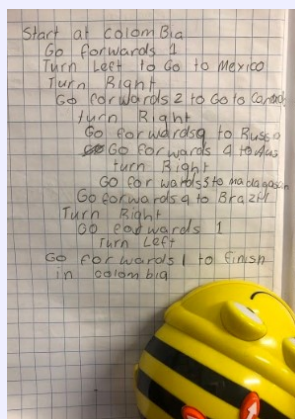 Start at colomBia
Go forwards 1
Turn Left to Go to Mexico
Turn Right
Go forwards 2 to Go to Canada
turn Right
Go forwards 9 to Russa
Go forwards 4 to Aus
turn Right
Go for wards 5 to madagascan
Go forwards 9 to Brazil
Turn Right
Go forwards 1
Turn Left
Go for wards 1 to finish
in colombia